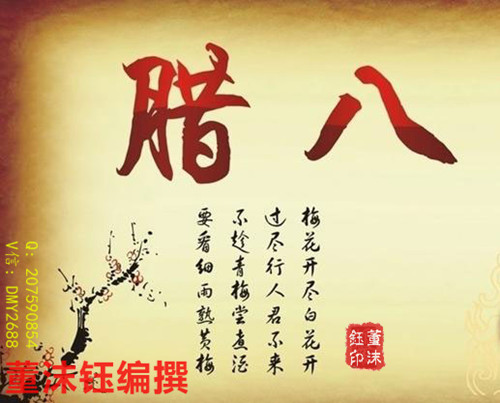 腊八
梅花开尽白花开
过尽行人君不来
不趁青梅尝煮酒
要看细雨熟黄梅
董沫
钰印
Q:207596854
V信:DMY2688
董沫钰编撰